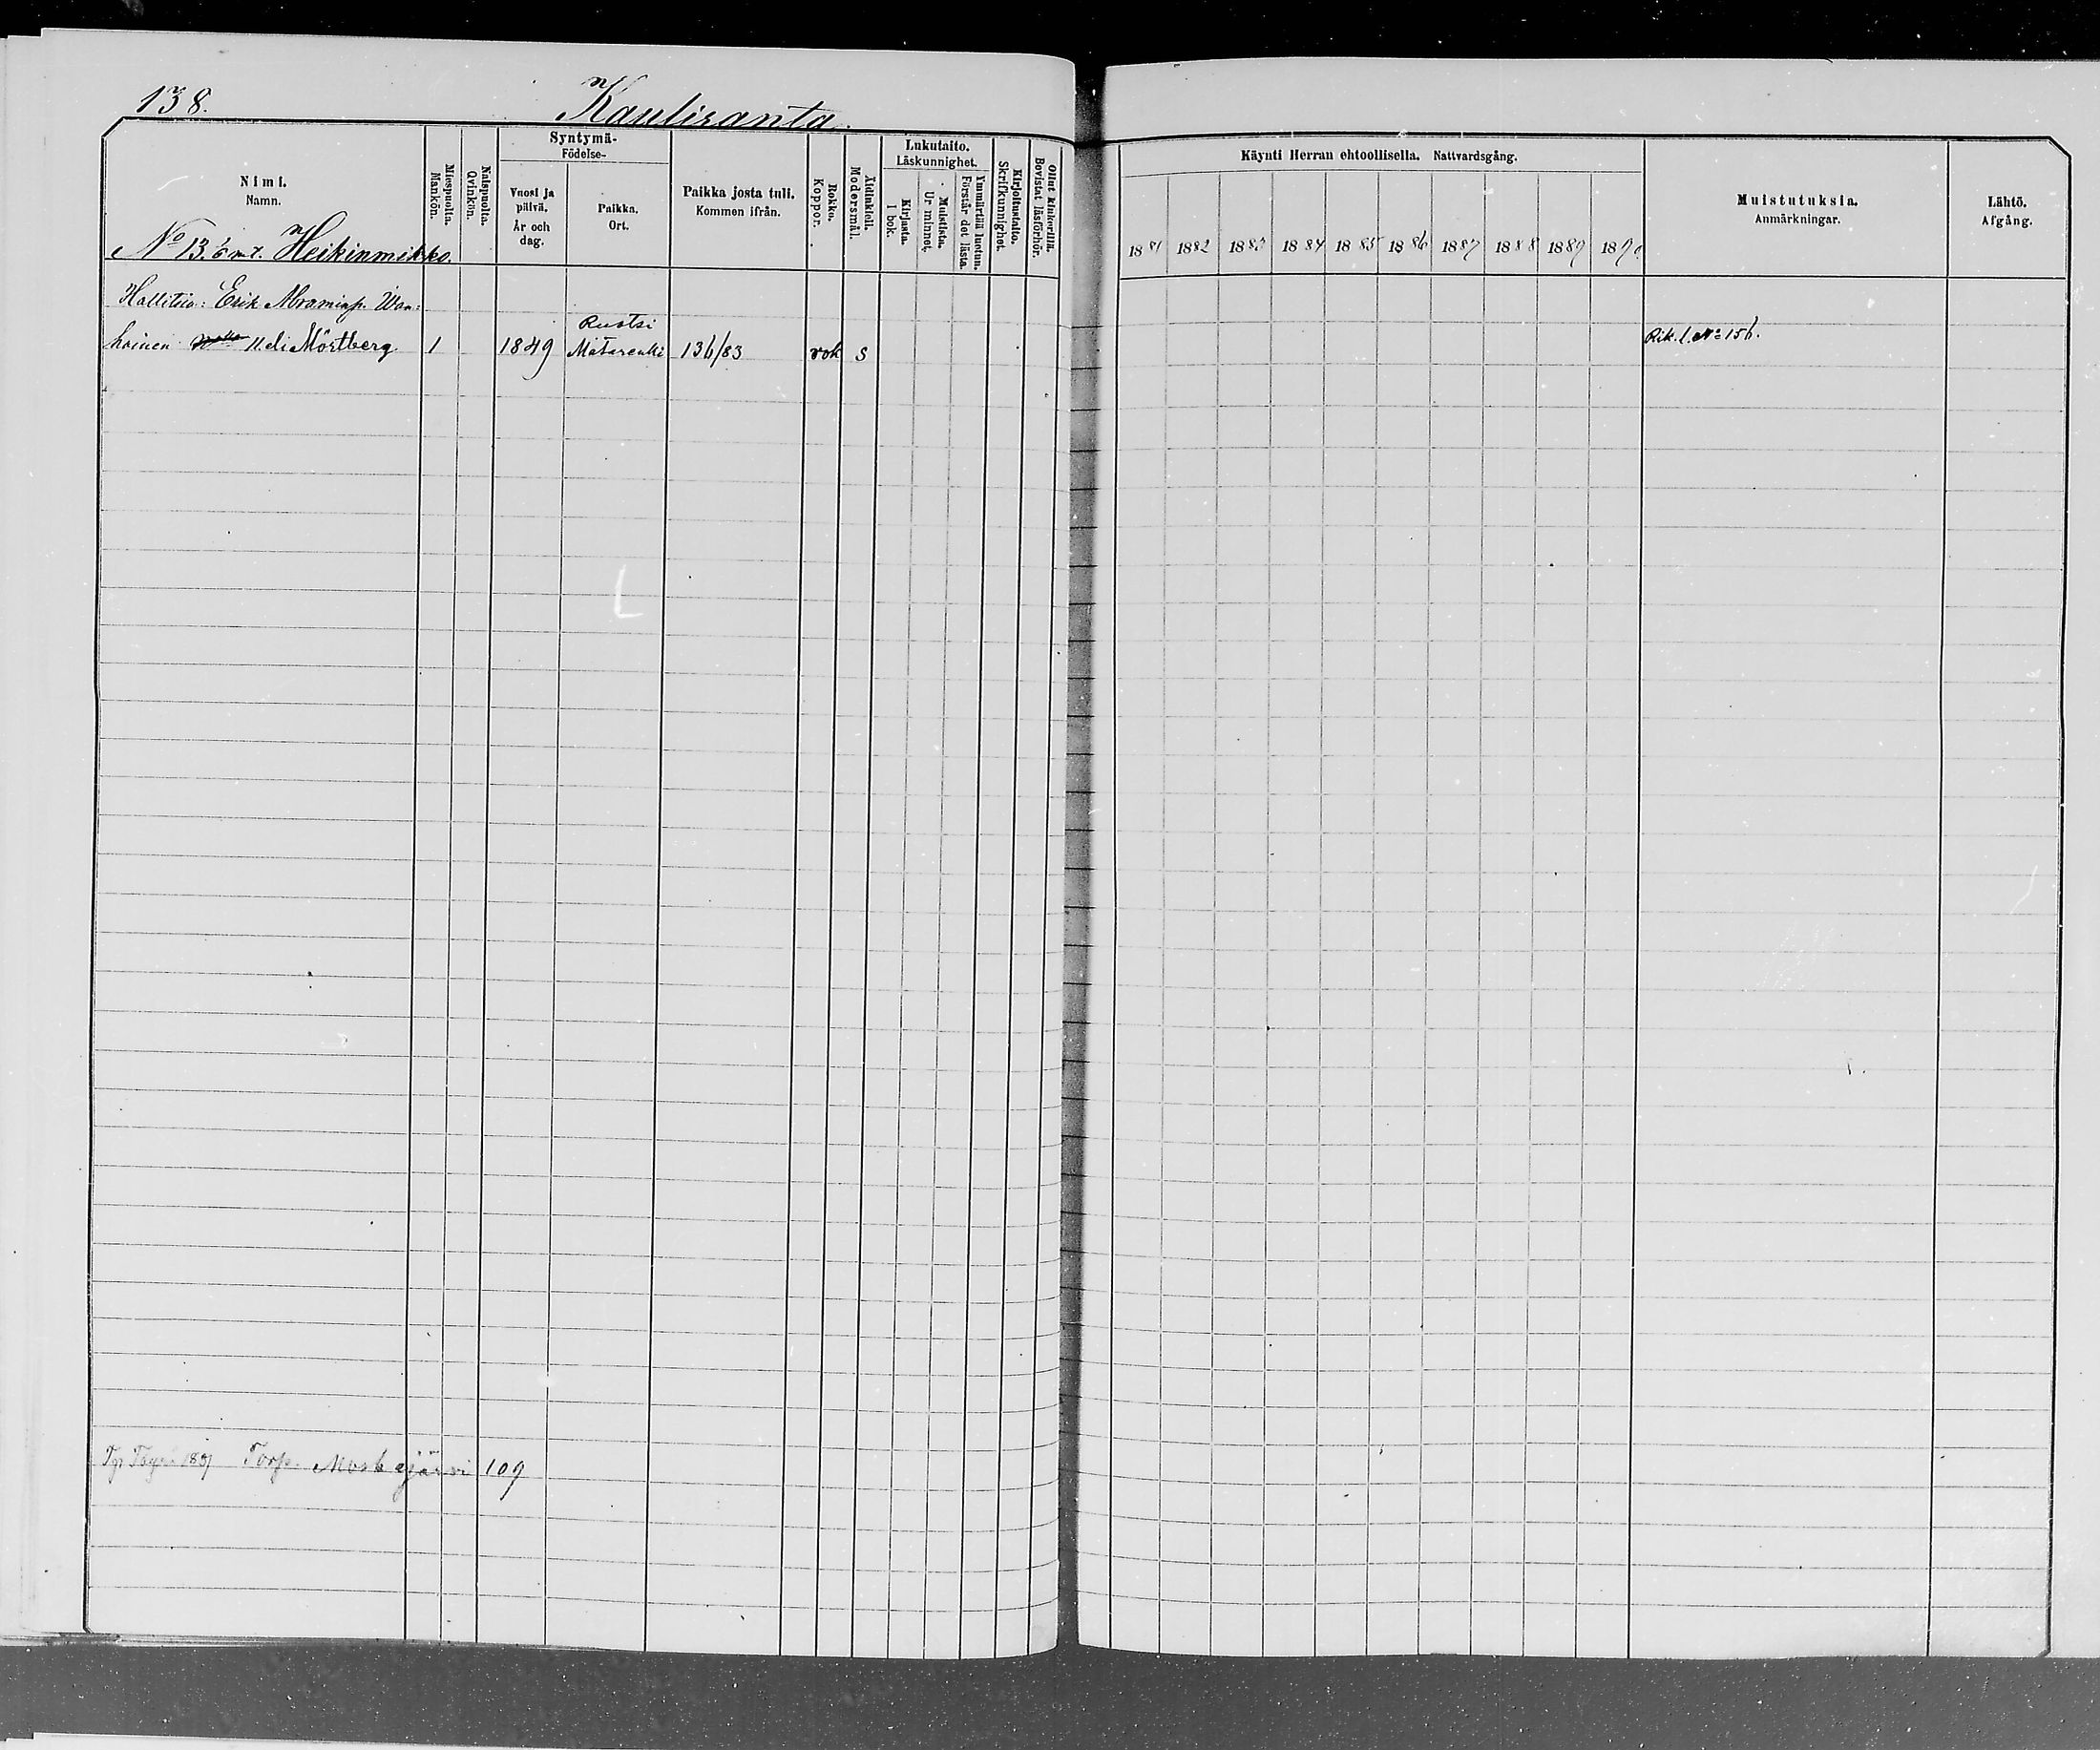 138. Kauliranta.
Syntymä-
Födelse-
Lukutaito.
Läskunnighet.
Nimi.
Namn.
Miespuolta.
Mankön.
Naispuolta.
Qvinkön.
Vuosi ja
päivä.
År och
dag.
Paikka.
Ort.
Paikka josta tuli.
Kommen ifrån.
Rokko.
Koppor.
Äidinkieli.
Modersmål.
Kirjasta.
I bok.
Muistista.
Ur minnet.
Ymmärtää luetun.
Förstår det lästa.
Kirjoitustaito.
Skrifkunnighet.
Ollut kinkerillä.
Bevistat läsförhör.
No 13. mt. Heikinmikko.
Hallitsia: Erik Abraminp. Wan-
hainen eli Mörtberg 1 1849 Ruotsi Matarenki 136/83 rok s
Torp. Mustajärvi 109
Käynti Herran ehtoollisella. Nattvardsgång.
Muistutuksia.
Anmärkningar.
Lähtö.
Afgång.
1881 1882 1883 1884 1885 1886 1887 1888 1889 1890
Rik. l. No 156.